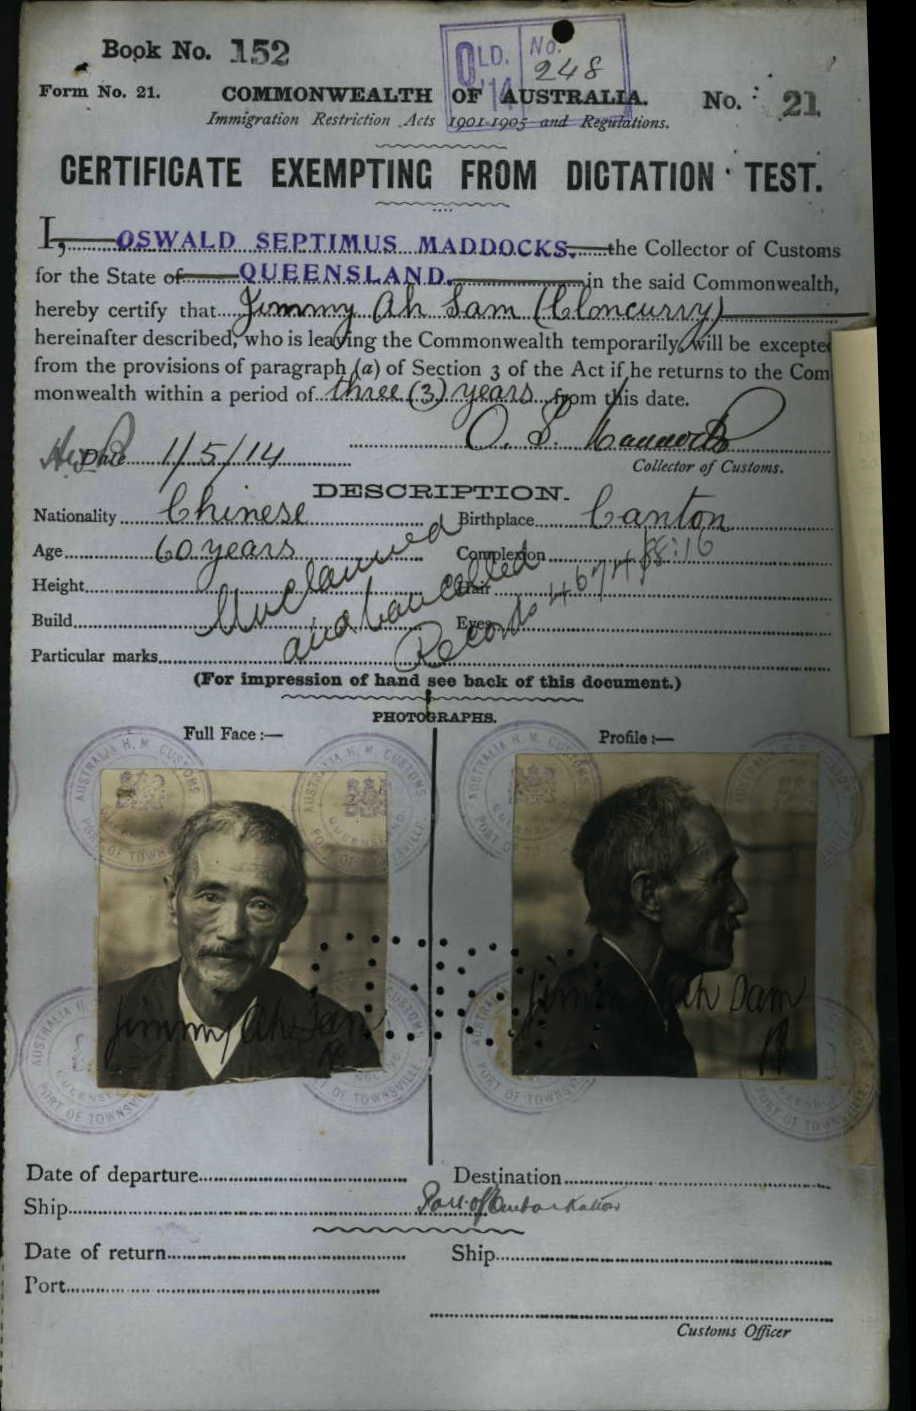 Book No. 152
QLD. '14 No. 248
Form No. 21. COMMONWEALTH OF AUSTRALIA. No. 21
Immigration Restriction Acts 1901-1905 and Regulations.
CERTIFICATE EXEMPTING FROM DICTATION TEST.
I, OSWALD SEPTIMUS MADDOCKS. the Collector of Customs
for the State of QUEENSLAND. in the said Commonwealth,
hereby certify that Jimmy Ah Sam (Cloncurry)
hereinafter described, who is leaving the Commonwealth temporarily, will be excepte
from the provisions of paragraph (a) of Section 3 of the Act if he returns to the Com
monwealth within a period of three (3) years from this date.
O. S. Maddocks
Date 1/5/14 Collector of Customs.
DESCRIPTION.
Nationality Chinese Birthplace Canton
Age 60 years Complexion
Height Hair
Build Eyes
Particular marks
Unclaimed
and Cancelled
Records
(For impression of hand see back of this document.)
PHOTOGRAPHS.
Full Face :— Profile :—
AUSTRALIA H. M. CUSTOMS QUEENSLAND PORT OF TOWNSVILLE
Jimmy Ah Sam Jimmy Ah Sam
Date of departure Destination
Ship Port of Embarkation
Date of return Ship
Port
Customs Officer